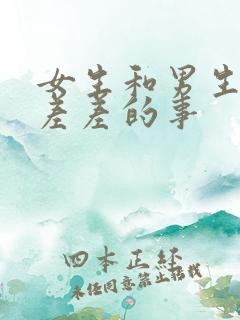 女生和男生
差差的事
四本正经
未经同意禁止搭载